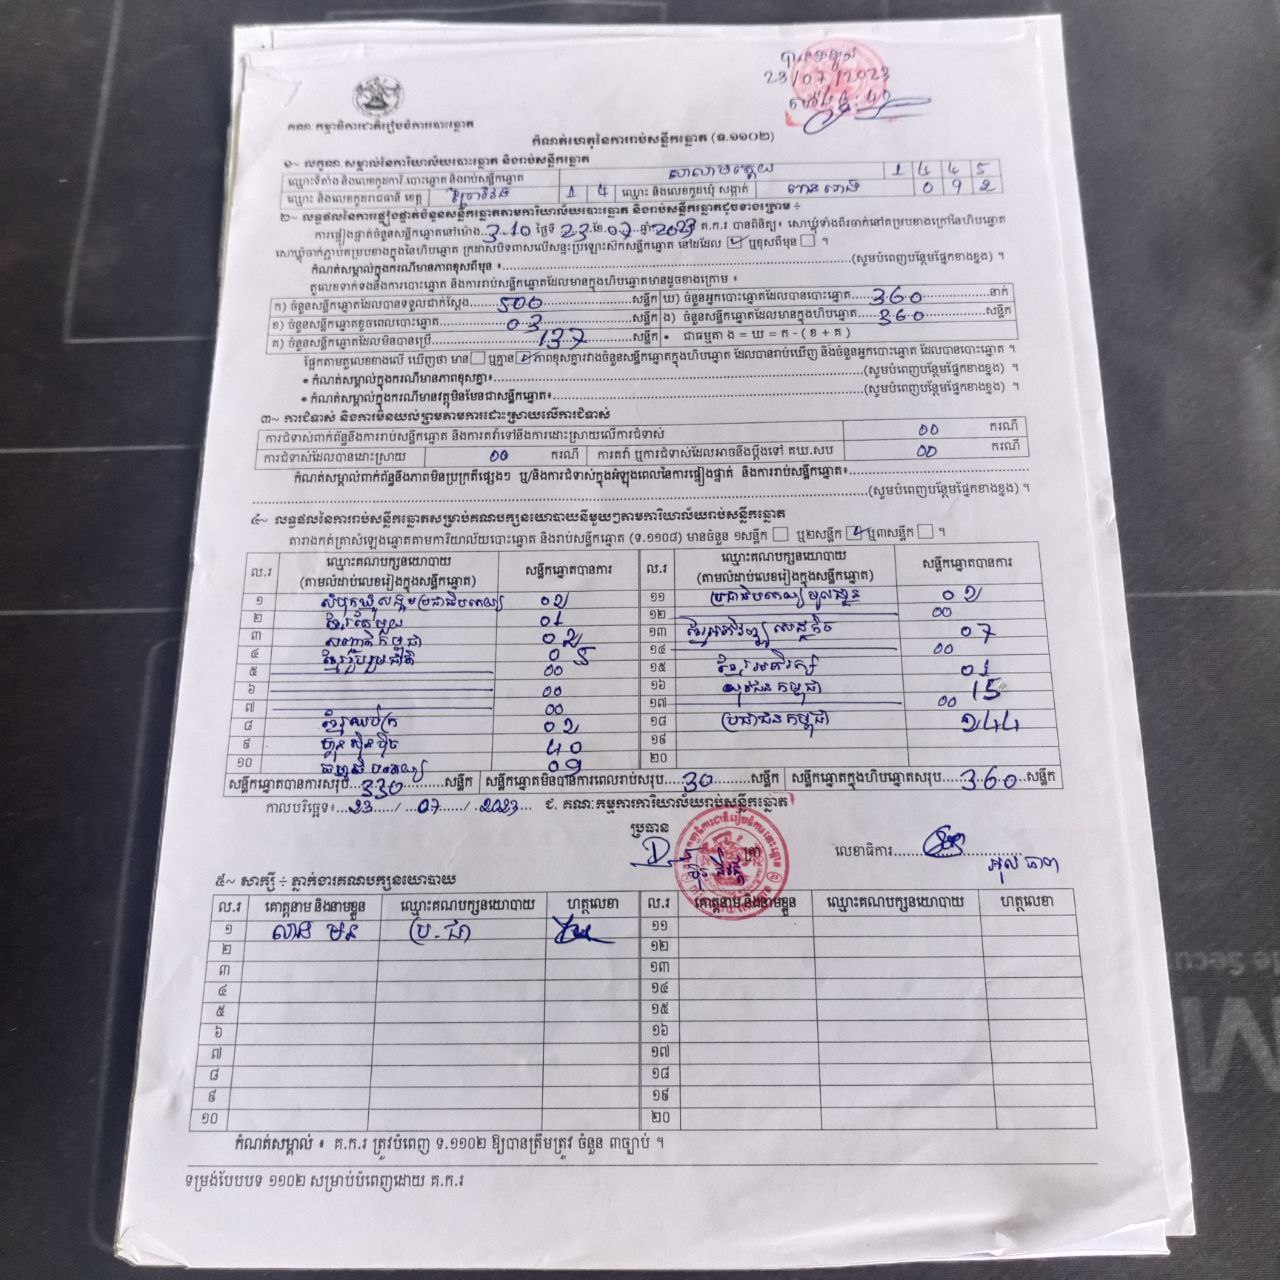 23/07/2023
គណៈកម្មាធិការជាតិរៀបចំការបោះឆ្នោត
កំណត់ហេតុនៃការរាប់សន្លឹកឆ្នោត (ទ.១១០២)
១~ លក្ខណៈសម្គាល់នៃការិយាល័យបោះឆ្នោត និងរាប់សន្លឹកឆ្នោត
ឈ្មោះទីតាំង និងលេខកូដការិ.បោះឆ្នោត និងរាប់សន្លឹកឆ្នោត 1 4 4 5
ឈ្មោះ និងលេខកូដរាជធានី ខេត្ត ព្រៃវែង 1 4 ឈ្មោះ និងលេខកូដឃុំ សង្កាត់ 0 9 2
២~ លទ្ធផលនៃការផ្ទៀងផ្ទាត់ចំនួនសន្លឹកឆ្នោតតាមការិយាល័យបោះឆ្នោត និងរាប់សន្លឹកឆ្នោតដូចខាងក្រោម ÷
ការផ្ទៀងផ្ទាត់ចំនួនសន្លឹកឆ្នោតនៅម៉ោង 3:10 ថ្ងៃទី 23 ខែ 07 ឆ្នាំ 2023 គ.ក.រ បានពិនិត្យ៖ សោឃ្លុំទាំងពីរចាក់នៅគម្របខាងក្រៅនៃហិបឆ្នោត
សោឃ្លុំចាក់ភ្ជាប់គម្របខាងក្នុងនៃហិបឆ្នោត ក្រដាសបិទពាសលើសន្ទះប្រឡោះសឹកសន្លឹកឆ្នោត នៅដដែល ☑ ឬខុសពីមុន ☐ ។
កំណត់សម្គាល់ក្នុងករណីមានភាពខុសពីមុន ៖ (សូមបំពេញបន្ថែមផ្នែកខាងខ្នង) ។
តួលេខទាក់ទងនឹងការបោះឆ្នោត និងការរាប់សន្លឹកឆ្នោតដែលមានក្នុងហិបឆ្នោតមានដូចខាងក្រោម ៖
ក) ចំនួនសន្លឹកឆ្នោតដែលបានទទួលជាក់ស្តែង 500 សន្លឹក ឃ) ចំនួនអ្នកបោះឆ្នោតដែលបានបោះឆ្នោត 360 នាក់
ខ) ចំនួនសន្លឹកឆ្នោតខូចពេលបោះឆ្នោត 03 សន្លឹក ង) ចំនួនសន្លឹកឆ្នោតដែលមានក្នុងហិបឆ្នោត 360 សន្លឹក
គ) ចំនួនសន្លឹកឆ្នោតដែលមិនបានប្រើ 137 សន្លឹក • ជាធម្មតា ង = ឃ = ក - ( ខ + គ )
ផ្អែកតាមតួលេខខាងលើ ឃើញថា មាន ☐ ឬគ្មាន ☑ ភាពខុសគ្នារវាងចំនួនសន្លឹកឆ្នោតក្នុងហិបឆ្នោត ដែលបានរាប់ឃើញ និងចំនួនអ្នកបោះឆ្នោត ដែលបានបោះឆ្នោត ។
• កំណត់សម្គាល់ក្នុងករណីមានភាពខុសគ្នា៖ (សូមបំពេញបន្ថែមផ្នែកខាងខ្នង) ។
• កំណត់សម្គាល់ក្នុងករណីមានវត្ថុមិនមែនជាសន្លឹកឆ្នោត៖ (សូមបំពេញបន្ថែមផ្នែកខាងខ្នង) ។
៣~ ការជំទាស់ និងការមិនយល់ព្រមតាមការដោះស្រាយលើការជំទាស់
ការជំទាស់ពាក់ព័ន្ធនឹងការរាប់សន្លឹកឆ្នោត និងការតវ៉ាទៅនឹងការដោះស្រាយលើការជំទាស់ 00 ករណី
ការជំទាស់ដែលបានដោះស្រាយ 00 ករណី ការតវ៉ា ឬការជំទាស់ដែលអាចនឹងប្តឹងទៅ គឃ.សប 00 ករណី
កំណត់សម្គាល់ពាក់ព័ន្ធនឹងភាពមិនប្រក្រតីផ្សេងៗ ឬ/និងការជំទាស់ក្នុងអំឡុងពេលនៃការផ្ទៀងផ្ទាត់ និងការរាប់សន្លឹកឆ្នោត៖
(សូមបំពេញបន្ថែមផ្នែកខាងខ្នង) ។
៤~ លទ្ធផលនៃការរាប់សន្លឹកឆ្នោតសម្រាប់គណបក្សនយោបាយនីមួយៗតាមការិយាល័យរាប់សន្លឹកឆ្នោត
តារាងកត់ត្រាសំឡេងឆ្នោតតាមការិយាល័យបោះឆ្នោត និងរាប់សន្លឹកឆ្នោត (ទ.១១០៨) មានចំនួន ១សន្លឹក ☐ ឬ២សន្លឹក ☑ ឬ៣សន្លឹក ☐ ។
ល.រ ឈ្មោះគណបក្សនយោបាយ (តាមលំដាប់លេខរៀងក្នុងសន្លឹកឆ្នោត) សន្លឹកឆ្នោតបានការ ល.រ ឈ្មោះគណបក្សនយោបាយ (តាមលំដាប់លេខរៀងក្នុងសន្លឹកឆ្នោត) សន្លឹកឆ្នោតបានការ
១ សំបុកឃ្មុំសង្គមប្រជាធិបតេយ្យ 02 ១១ ប្រជាធិបតេយ្យមូលដ្ឋាន 02
២ ខ្មែរតែមួយ 01 ១២ 00
៣ សញ្ជាតិកម្ពុជា 02 ១៣ ខ្មែរអភិវឌ្ឍសេដ្ឋកិច្ច 07
៤ ខ្មែររួបរួមជាតិ 05 ១៤ 00
៥ 00 ១៥ ខ្មែរអភិរក្ស 01
៦ 00 ១៦ យុវជនកម្ពុជា 15
៧ 00 ១៧ 00
៨ ខ្មែរឈប់ក្រ 02 ១៨ ប្រជាជនកម្ពុជា 244
៩ ហ៊្វុនស៊ិនប៉ិច 40 ១៩
១០ 09 ២០
សន្លឹកឆ្នោតបានការសរុប 330 សន្លឹក សន្លឹកឆ្នោតមិនបានការពេលរាប់សរុប 30 សន្លឹក សន្លឹកឆ្នោតក្នុងហិបឆ្នោតសរុប 360 សន្លឹក
កាលបរិច្ឆេទ៖ 23 / 07 / 2023 ជ. គណៈកម្មការការិយាល័យរាប់សន្លឹកឆ្នោត
ប្រធាន
លេខាធិការ
៥~ សាក្សី ÷ ភ្នាក់ងារគណបក្សនយោបាយ
ល.រ គោត្តនាម និងនាមខ្លួន ឈ្មោះគណបក្សនយោបាយ ហត្ថលេខា ល.រ គោត្តនាម និងនាមខ្លួន ឈ្មោះគណបក្សនយោបាយ ហត្ថលេខា
១ ប្រ.ជា ១១
២ ១២
៣ ១៣
៤ ១៤
៥ ១៥
៦ ១៦
៧ ១៧
៨ ១៨
៩ ១៩
១០ ២០
កំណត់សម្គាល់ ៖ គ.ក.រ ត្រូវបំពេញ ទ.១១០២ ឱ្យបានត្រឹមត្រូវ ចំនួន ៣ច្បាប់ ។
ទម្រង់បែបបទ ១១០២ សម្រាប់បំពេញដោយ គ.ក.រ